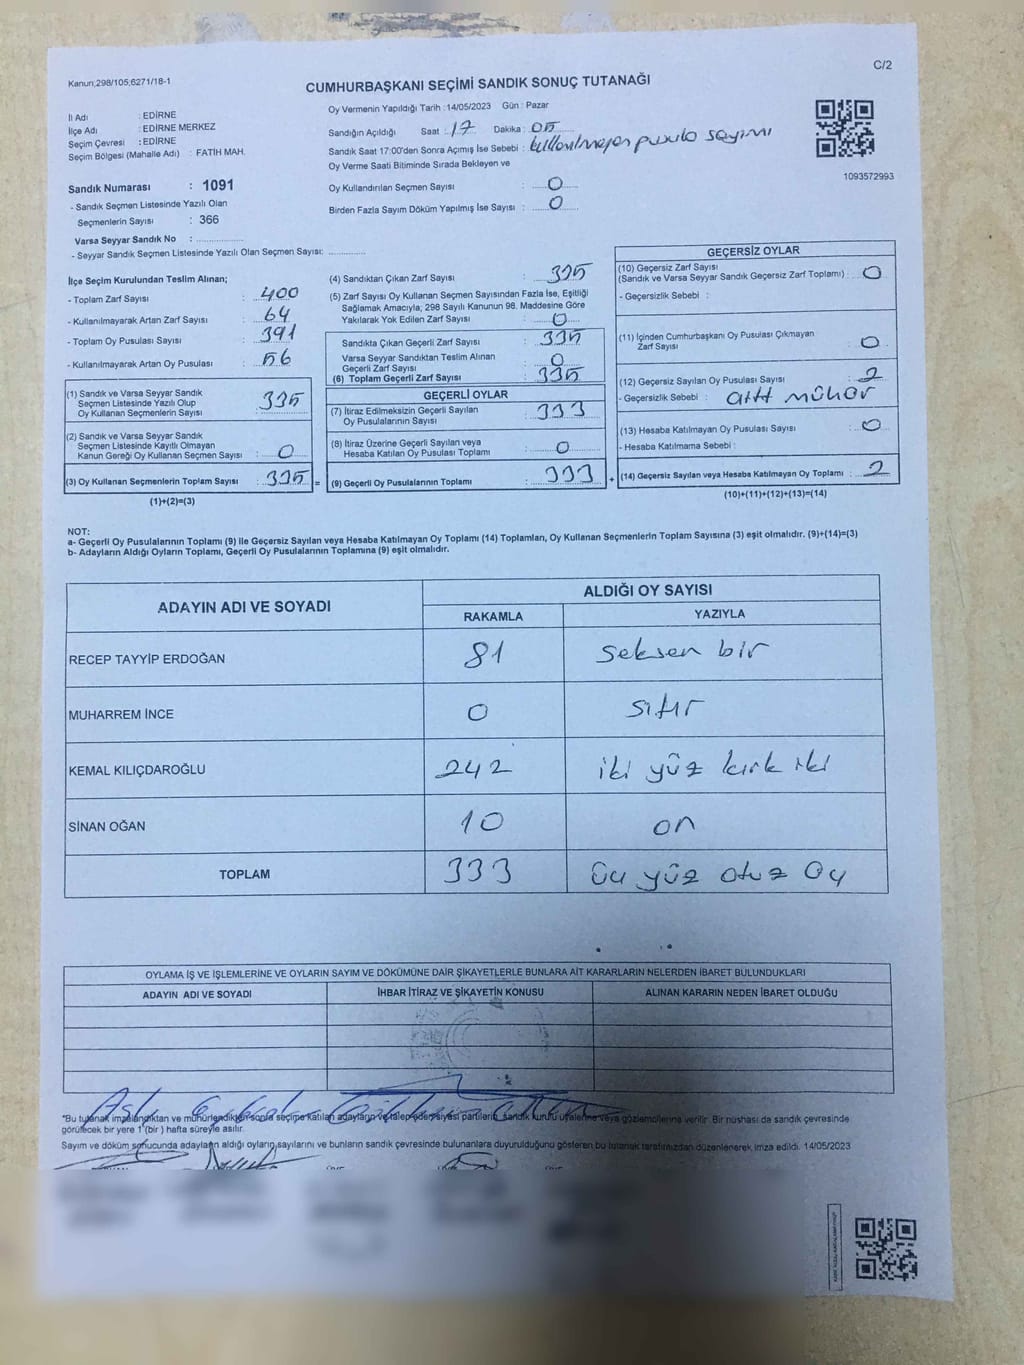 C/2
Kanun:298/105;6271/18-1
CUMHURBAŞKANI SEÇİMİ SANDIK SONUÇ TUTANAĞI
İl Adı : EDİRNE
İlçe Adı : EDİRNE MERKEZ
Seçim Çevresi : EDİRNE
Seçim Bölgesi (Mahalle Adı) : FATİH MAH.
Oy Vermenin Yapıldığı Tarih :14/05/2023 Gün : Pazar
Sandığın Açıldığı Saat : 17 Dakika : 05
Sandık Saat 17:00'den Sonra Açımış İse Sebebi : kullanılmayan pusula sayımı
Oy Verme Saati Bitiminde Sırada Bekleyen ve
Oy Kullandırılan Seçmen Sayısı : 0
Birden Fazla Sayım Döküm Yapılmış İse Sayısı : 0
1093572993
Sandık Numarası : 1091
- Sandık Seçmen Listesinde Yazılı Olan
Seçmenlerin Sayısı : 366
Varsa Seyyar Sandık No :
- Seyyar Sandık Seçmen Listesinde Yazılı Olan Seçmen Sayısı:
İlçe Seçim Kurulundan Teslim Alınan;
- Toplam Zarf Sayısı : 400
- Kullanılmayarak Artan Zarf Sayısı : 64
- Toplam Oy Pusulası Sayısı : 391
- Kullanılmayarak Artan Oy Pusulası : 56
(1) Sandık ve Varsa Seyyar Sandık
Seçmen Listesinde Yazılı Olup
Oy Kullanan Seçmenlerin Sayısı : 335
(2) Sandık ve Varsa Seyyar Sandık
Seçmen Listesinde Kayıtlı Olmayan
Kanun Gereği Oy Kullanan Seçmen Sayısı : 0
(3) Oy Kullanan Seçmenlerin Toplam Sayısı : 335 =
(1)+(2)=(3)
(4) Sandıktan Çıkan Zarf Sayısı : 335
(5) Zarf Sayısı Oy Kullanan Seçmen Sayısından Fazla İse, Eşitliği
Sağlamak Amacıyla; 298 Sayılı Kanunun 98. Maddesine Göre
Yakılarak Yok Edilen Zarf Sayısı : 0
Sandıkta Çıkan Geçerli Zarf Sayısı : 335
Varsa Seyyar Sandıktan Teslim Alınan
Geçerli Zarf Sayısı : 0
(6) Toplam Geçerli Zarf Sayısı : 335
GEÇERLİ OYLAR
(7) İtiraz Edilmeksizin Geçerli Sayılan
Oy Pusulalarının Sayısı : 333
(8) İtiraz Üzerine Geçerli Sayılan veya
Hesaba Katılan Oy Pusulası Toplamı : 0
(9) Geçerli Oy Pusulalarının Toplamı : 333 +
GEÇERSİZ OYLAR
(10) Geçersiz Zarf Sayısı
(Sandık ve Varsa Seyyar Sandık Geçersiz Zarf Toplamı) : 0
- Geçersizlik Sebebi :
(11) İçinden Cumhurbaşkanı Oy Pusulası Çıkmayan
Zarf Sayısı : 0
(12) Geçersiz Sayılan Oy Pusulası Sayısı : 2
- Geçersizlik Sebebi : çift mühür
(13) Hesaba Katılmayan Oy Pusulası Sayısı : 0
- Hesaba Katılmama Sebebi :
(14) Geçersiz Sayılan veya Hesaba Katılmayan Oy Toplamı : 2
(10)+(11)+(12)+(13)=(14)
NOT:
a- Geçerli Oy Pusulalarının Toplamı (9) ile Geçersiz Sayılan veya Hesaba Katılmayan Oy Toplamı (14) Toplamları, Oy Kullanan Seçmenlerin Toplam Sayısına (3) eşit olmalıdır. (9)+(14)=(3)
b- Adayların Aldığı Oyların Toplamı, Geçerli Oy Pusulalarının Toplamına (9) eşit olmalıdır.
ADAYIN ADI VE SOYADI ALDIĞI OY SAYISI
RAKAMLA YAZIYLA
RECEP TAYYİP ERDOĞAN 81 seksen bir
MUHARREM İNCE 0 sıfır
KEMAL KILIÇDAROĞLU 242 iki yüz kırk iki
SİNAN OĞAN 10 on
TOPLAM 333 üç yüz otuz üç
OYLAMA İŞ VE İŞLEMLERİNE VE OYLARIN SAYIM VE DÖKÜMÜNE DAİR ŞİKAYETLERLE BUNLARA AİT KARARLARIN NELERDEN İBARET BULUNDUKLARI
ADAYIN ADI VE SOYADI İHBAR İTİRAZ VE ŞİKAYETİN KONUSU ALINAN KARARIN NEDEN İBARET OLDUĞU
*Bu tutanak imzalandıktan ve mühürlendikten sonra seçime katılan adayların ve talep eden siyasi partilerin sandık kurulu üyelerine veya gözlemcilerine verilir. Bir nüshası da sandık çevresinde
görülecek bir yere 1 (bir ) hafta süreyle asılır.
Sayım ve döküm sonucunda adayların aldığı oyların sayılarını ve bunların sandık çevresinde bulunanlara duyurulduğunu gösteren bu tutanak tarafımızdan düzenlenerek imza edildi. 14/05/2023